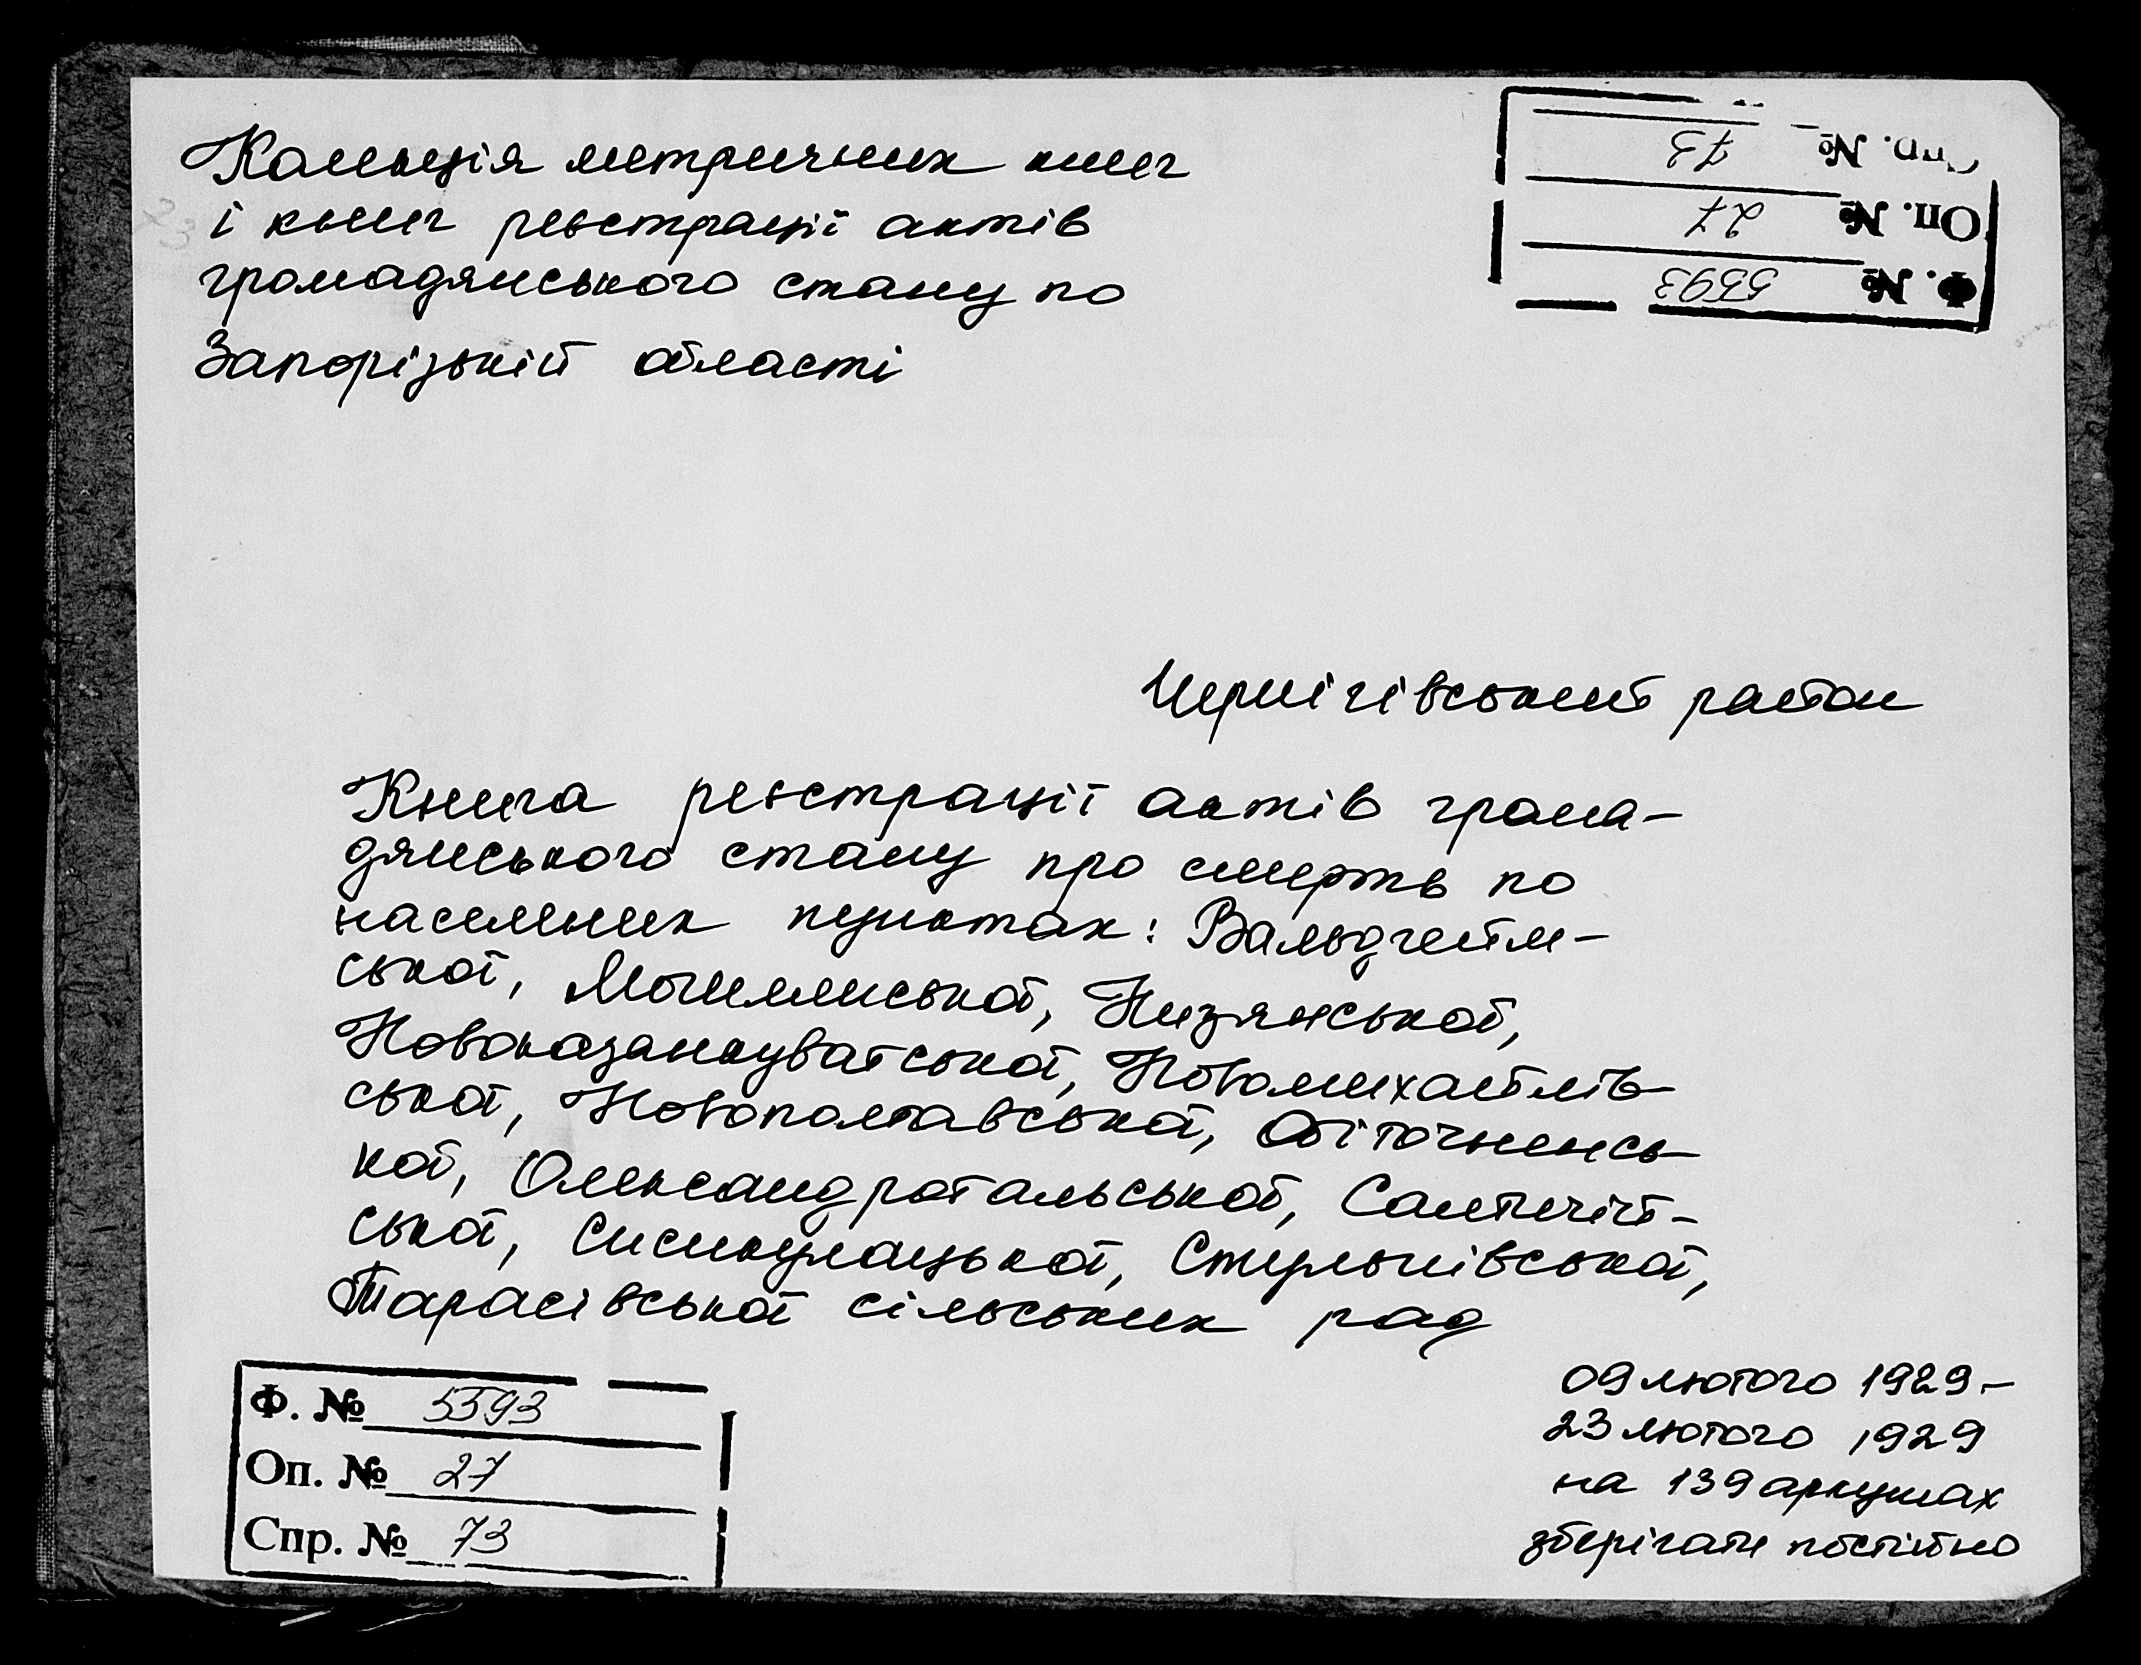 Колекція метричних книг
і книг реєстрації актів
громадянського стану по
Запорізькій області
Спр. № 73
Оп. № 27
Ф. № 5593
Чернігівський район
Книга реєстрації актів грома-
дянського стану про смерть по
населених пунктах: Вальдгейм-
ської, Могилянської, Низянської,
Новоказанкуватської, Новомихайлів-
ської, Новополтавської, Обіточненсь-
кої, Олександротальської,
ської, Сисикулацької, Стульнівської,
Тарасівської сільських рад
Ф. № 5593
Оп. № 27
Спр. № 73
09 лютого 1929 –
23 лютого 1929
на 139 аркушах
зберігати постійно